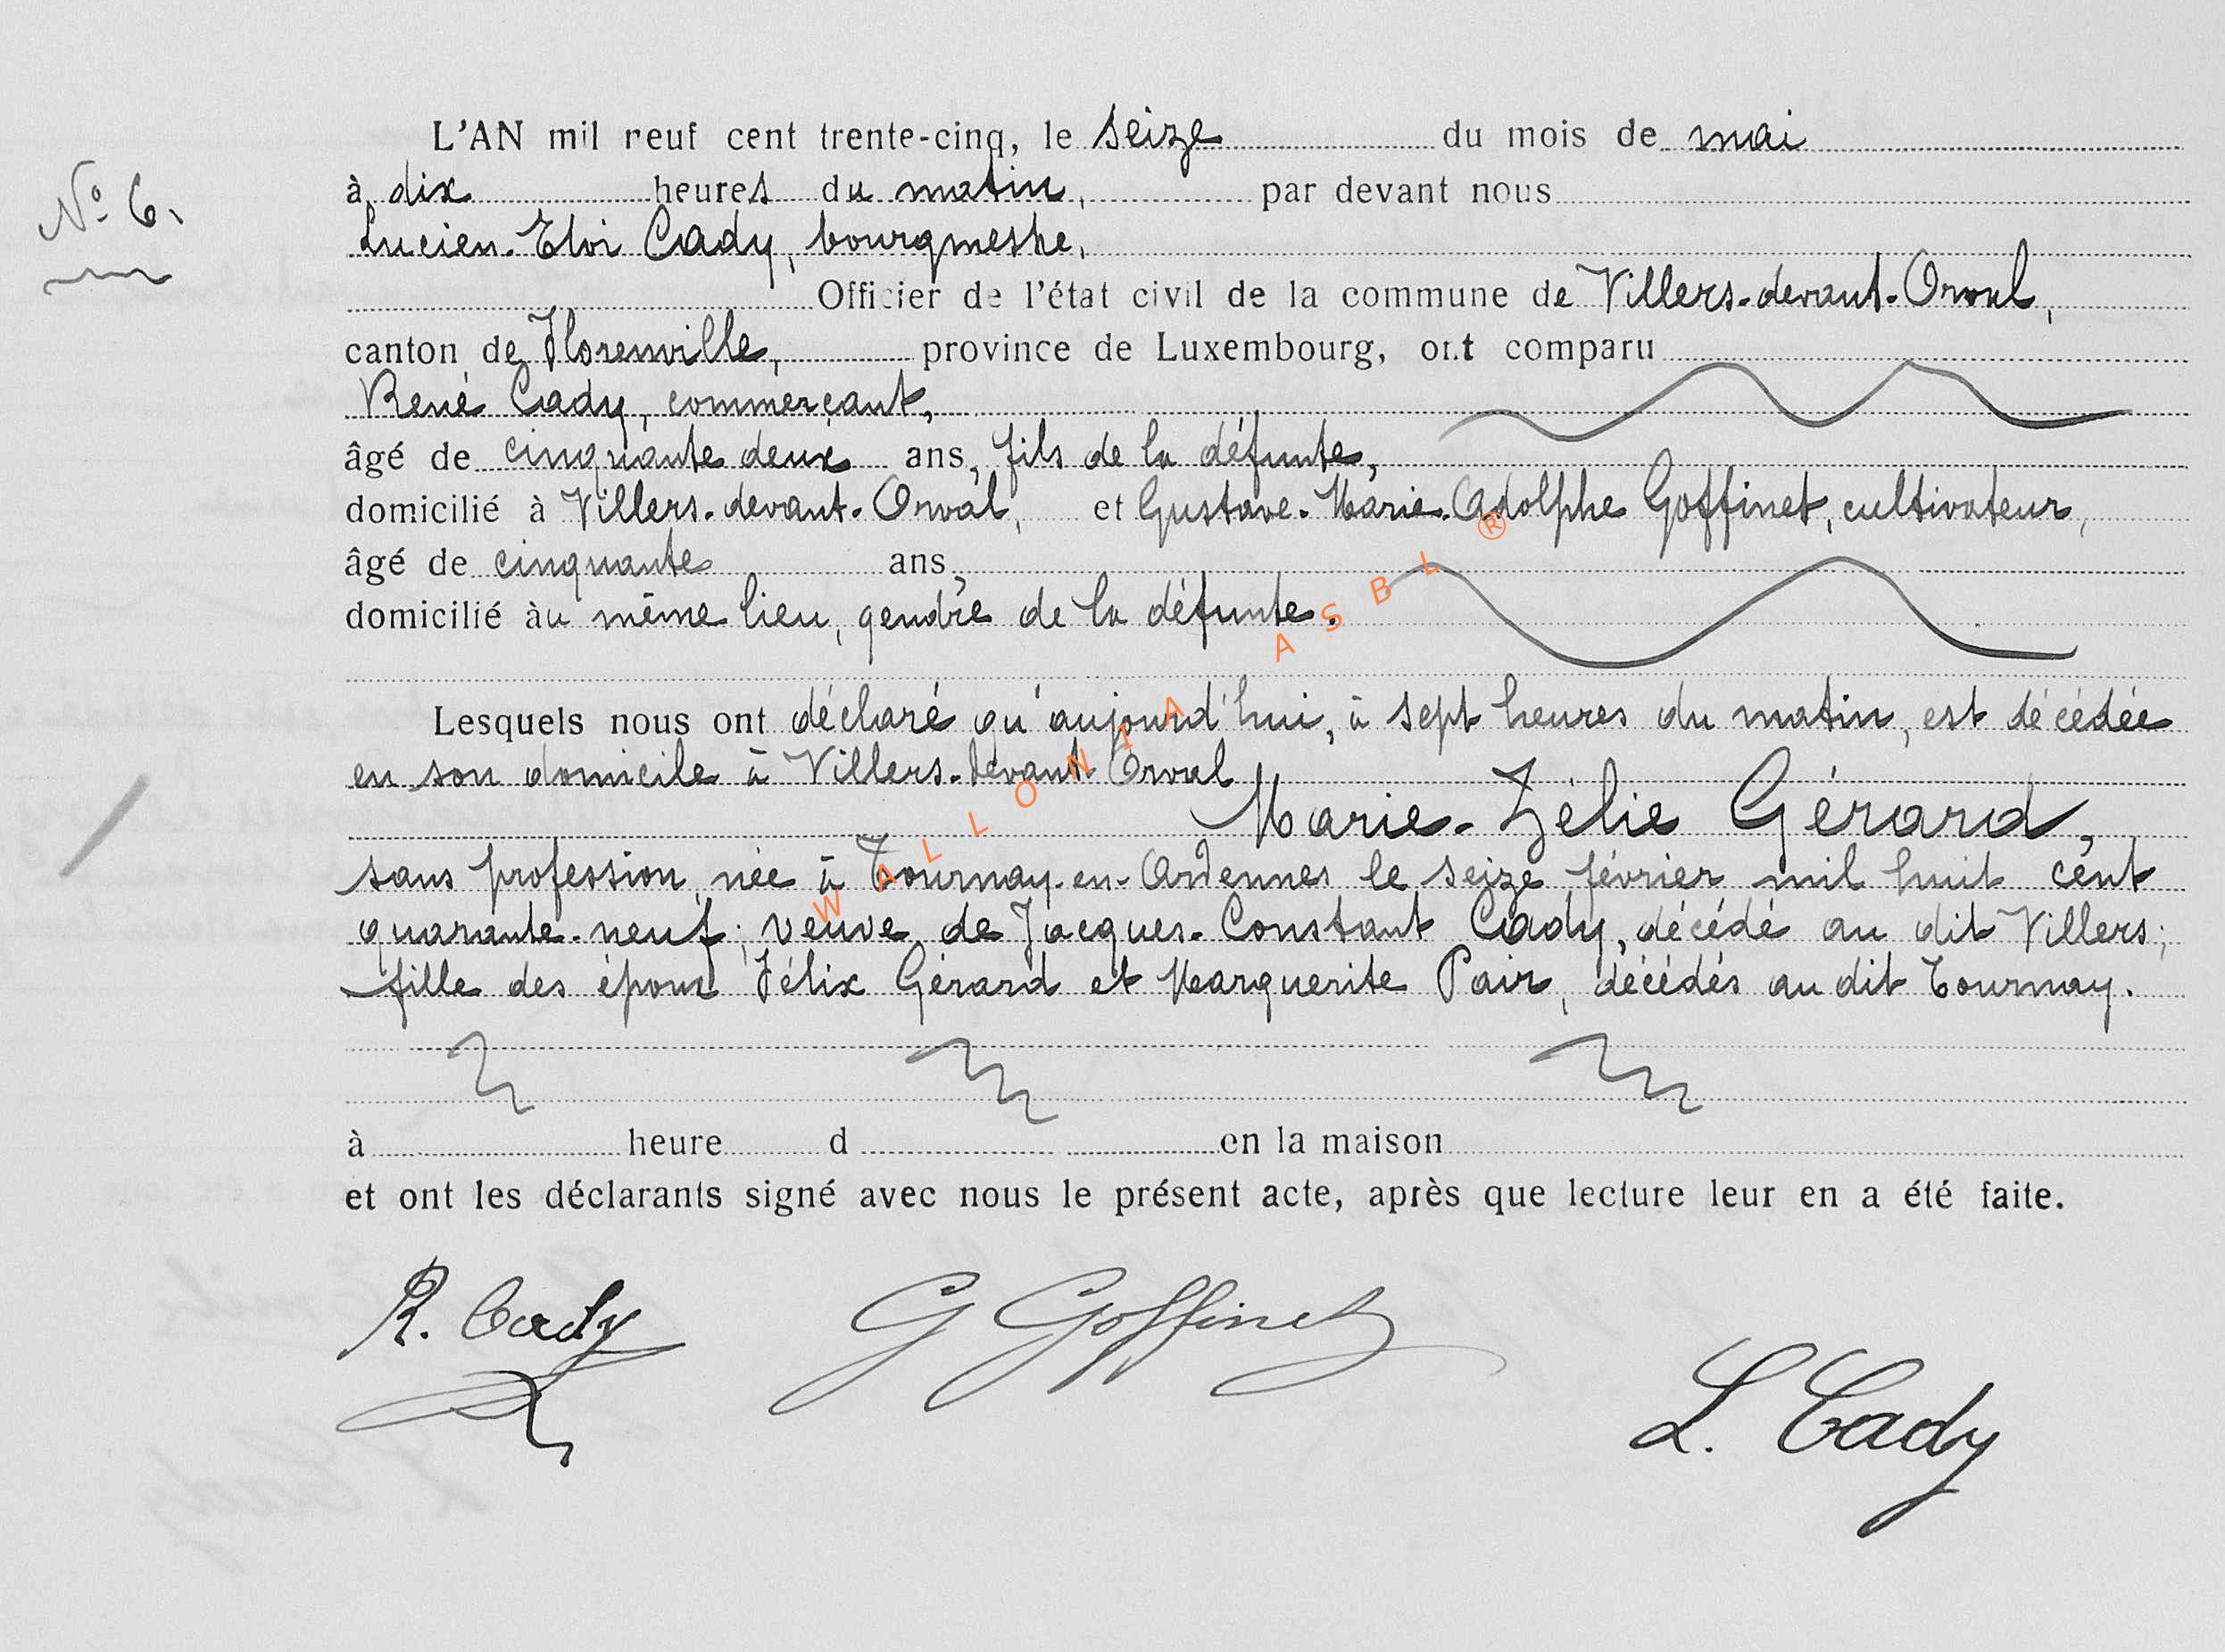 L'AN mil neuf cent trente-cinq, le seize du mois de mai
N° 6.
à dix heures du matin, par devant nous
Lucien-Eloi Cady, bourgmestre,
Officier de l'état civil de la commune de Villers-devant-Orval,
canton de Florenville, province de Luxembourg, ont comparu
René Cady, commerçant,
âgé de cinquante deux ans, fils de la défunte,
domicilié à Villers-devant-Orval, et Gustave-Marie-Adolphe Goffinet, cultivateur,
âgé de cinquante ans,
domicilié au même lieu, gendre de la défunte.
Lesquels nous ont déclaré qu'aujourd'hui, à sept heures du matin, est décédée
en son domicile à Villers-devant Orval
Marie-Zélie Gérard,
sans profession, née à Tournay-en-Ardennes le seize février mil huit cent
quarante-neuf; veuve de Jacques-Constant Cady, décédé au dit Villers;
fille des époux Félix Gérard et Marguerite Pair, décédés au dit Tournay.
à heure d en la maison
et ont les déclarants signé avec nous le présent acte, après que lecture leur en a été faite.
R. Cady G Goffinet
L. Cady
WALLONIA ASBL ®